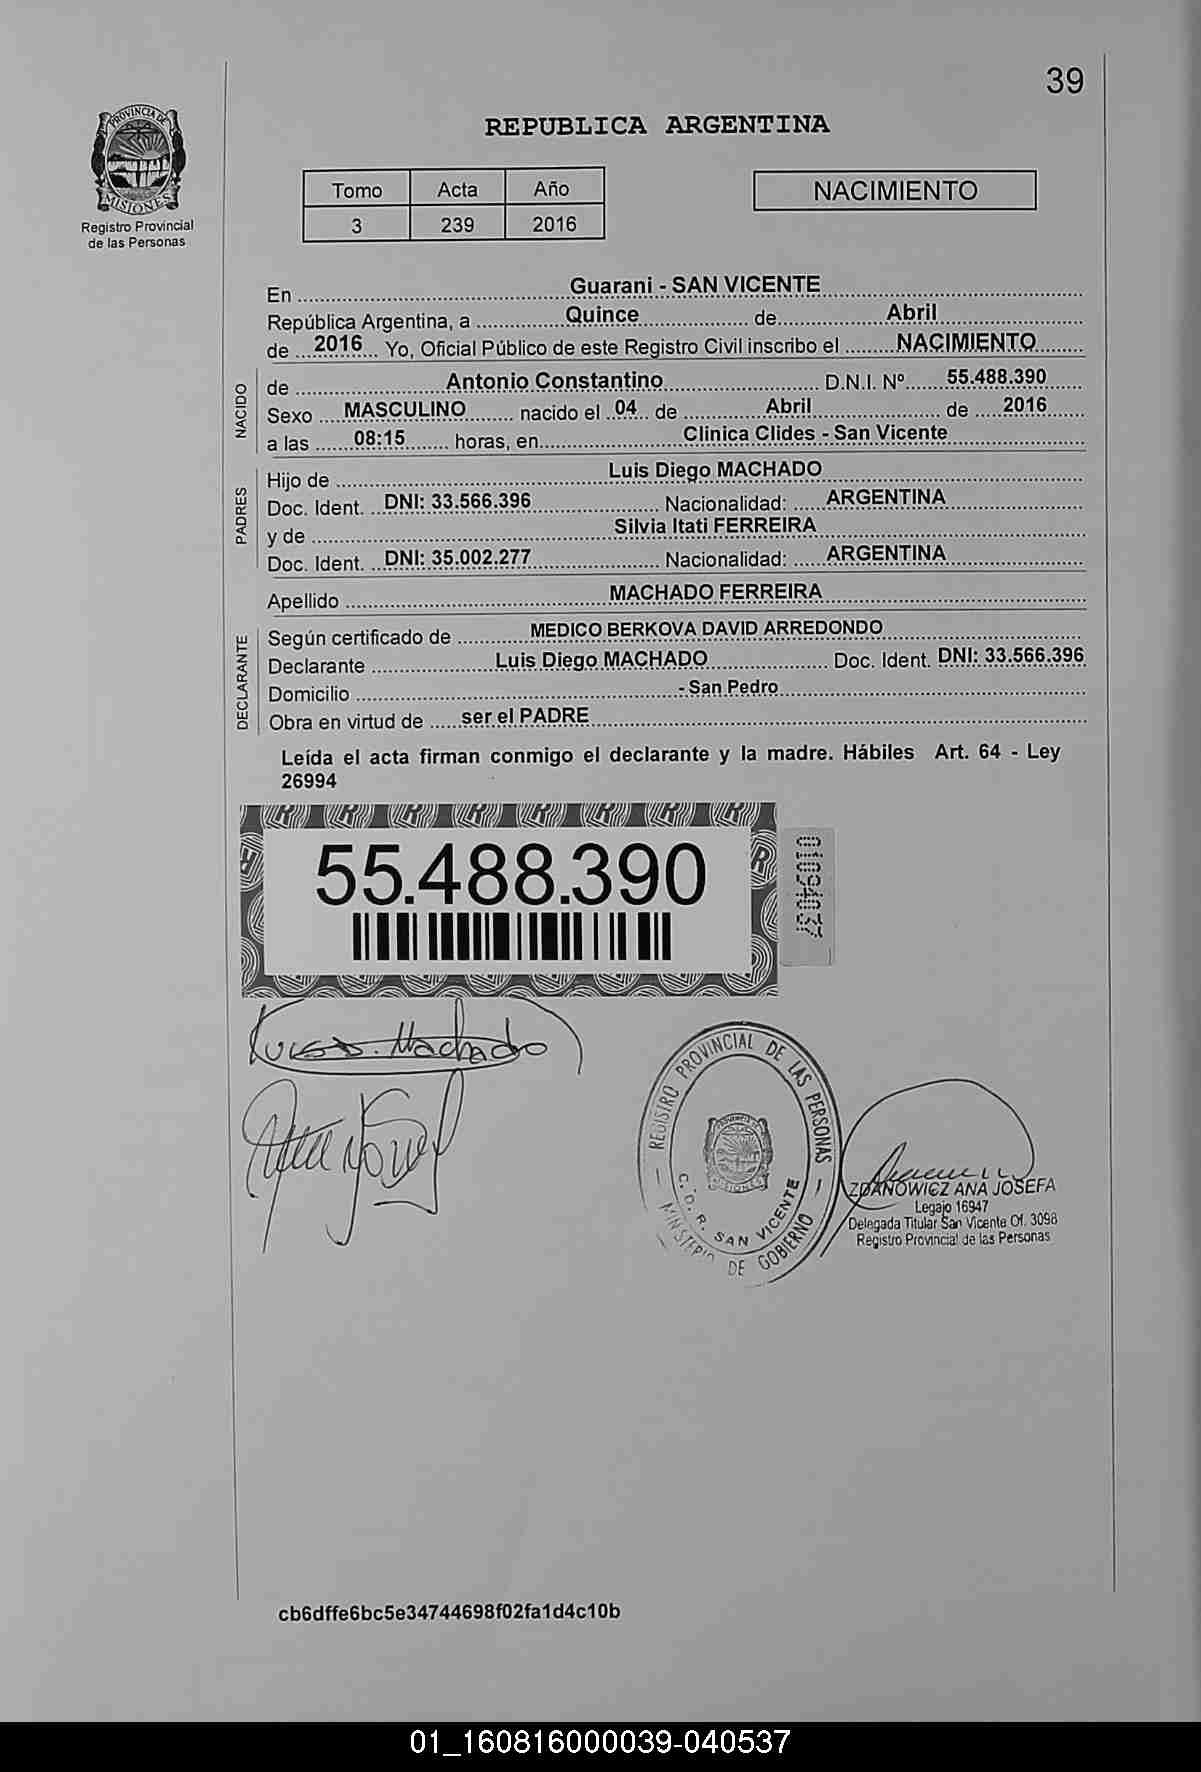 39
PROVINCIA DE
MISIONES
Registro Provincial
de las Personas
REPUBLICA ARGENTINA
Tomo Acta Año
3 239 2016
NACIMIENTO
En Guarani - SAN VICENTE
República Argentina, a Quince de Abril
de 2016 Yo, Oficial Público de este Registro Civil inscribo el NACIMIENTO
NACIDO
de Antonio Constantino D.N.I. Nº 55.488.390
Sexo MASCULINO nacido el 04 de Abril de 2016
a las 08:15 horas, en Clinica Clides - San Vicente
PADRES
Hijo de Luis Diego MACHADO
Doc. Ident. DNI: 33.566.396 Nacionalidad: ARGENTINA
y de Silvia Itati FERREIRA
Doc. Ident. DNI: 35.002.277 Nacionalidad: ARGENTINA
Apellido MACHADO FERREIRA
DECLARANTE
Según certificado de MEDICO BERKOVA DAVID ARREDONDO
Declarante Luis Diego MACHADO Doc. Ident. DNI: 33.566.396
Domicilio - San Pedro
Obra en virtud de ser el PADRE
Leída el acta firman conmigo el declarante y la madre. Hábiles Art. 64 - Ley
26994
55.488.390
01094037
Luis D. Machado
REGISTRO PROVINCIAL DE LAS PERSONAS
C. D. R. SAN VICENTE
MINISTERIO DE GOBIERNO
ZDANOWICZ ANA JOSEFA
Legajo 16947
Delegada Titular San Vicente Of. 3098
Registro Provincial de las Personas
cb6dffe6bc5e34744698f02fa1d4c10b
01_160816000039-040537